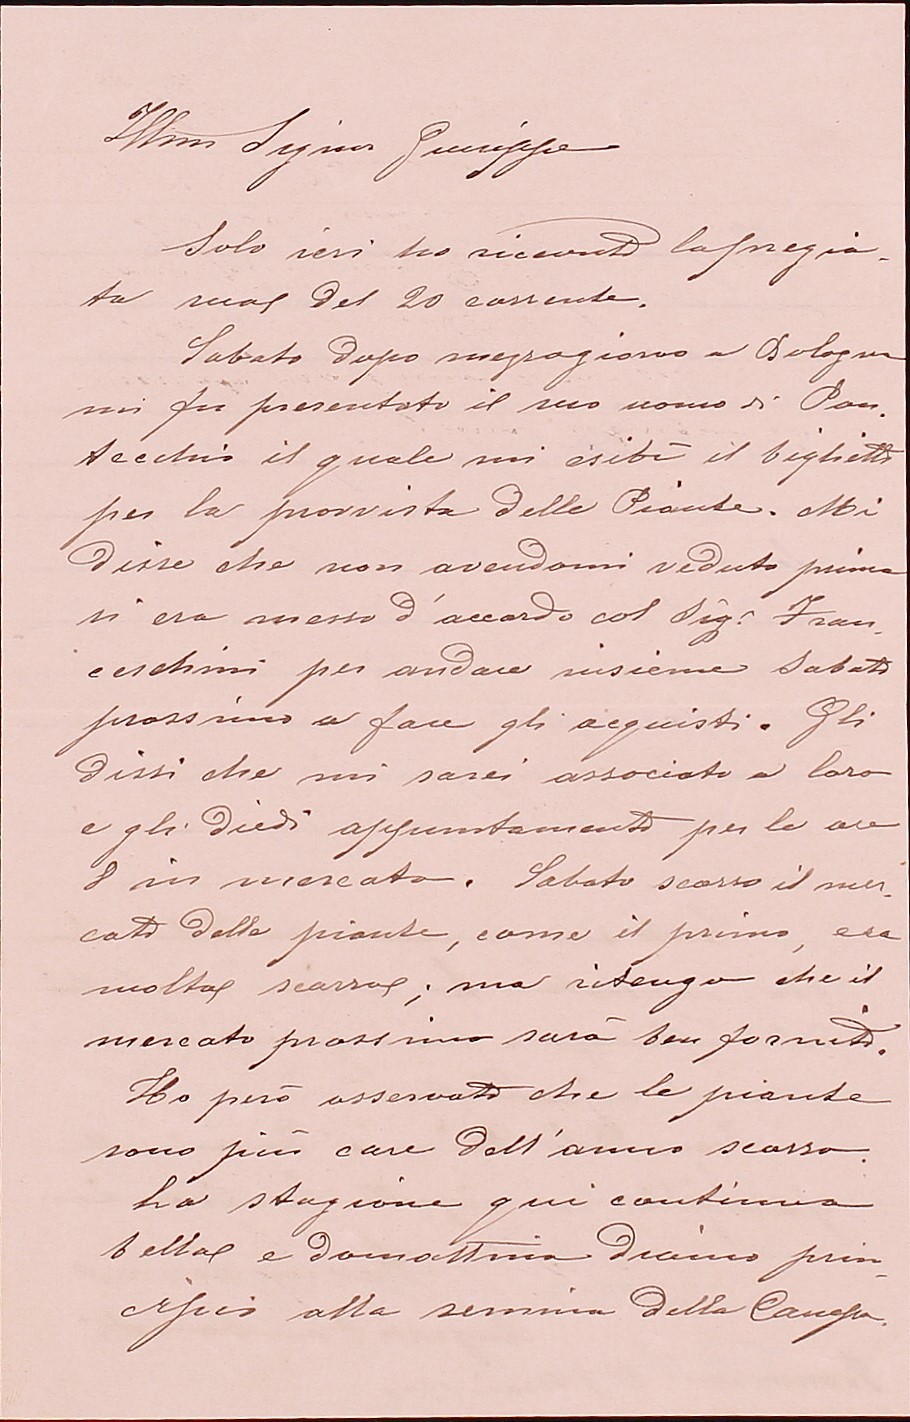 Illmo Signor Giuseppe
Solo ieri ho ricevuto la pregia-
ta sua del 20 corrente.
Sabato dopo mezzogiorno a Bologna
mi fu presentato il suo uomo di Pon-
tecchio il quale mi esibì il biglietto
per la provvista delle Piante. Mi
disse che non avendomi veduto prima
si era messo d'accordo col Sigr. Fran-
ceschini per andare insieme Sabato
prossimo a fare gli acquisti. Gli
dissi che mi sarei associato a loro
e gli diedi appuntamento per le ore
8 in mercato. Sabato scorso il mer-
cato delle piante, come il primo, era
molto scarso; ma ritengo che il
mercato prossimo sarà ben fornito.
Ho però osservato che le piante
sono più care dell'anno scorso.
La stagione qui continua
bella e domattina diamo prin-
cipio alla semina della Canepa.